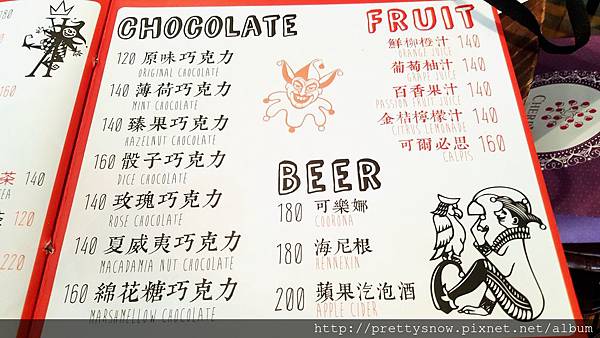 CHOCOLATE
120 原味巧克力
ORIGINAL CHOCOLATE
140 薄荷巧克力
MINT CHOCOLATE
140 臻果巧克力
HAZELNUT CHOCOLATE
160 骰子巧克力
DICE CHOCOLATE
140 玫瑰巧克力
ROSE CHOCOLATE
140 夏威夷巧克力
MACADAMIA NUT CHOCOLATE
160 綿花糖巧克力
MARSHMELLOW CHOCOLATE
FRUIT
鮮柳橙汁 140
ORANGE JUICE
葡萄柚汁 140
GRAPE JUICE
百香果汁 140
PASSION FRUIT JUICE
金桔檸檬汁 140
CITRUS LEMONADE
可爾必思 160
CALPIS
BEER
180 可樂娜
COORONA
180 海尼根
HENNEKIN
200 蘋果汽泡酒
APPLE CIDER
180
160
茶 140
TEA
茶 120
220
http://prettysnow.pixnet.net/album